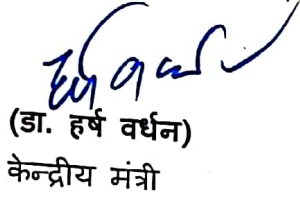 (डा. हर्ष वर्धन)
केन्द्रीय मंत्री